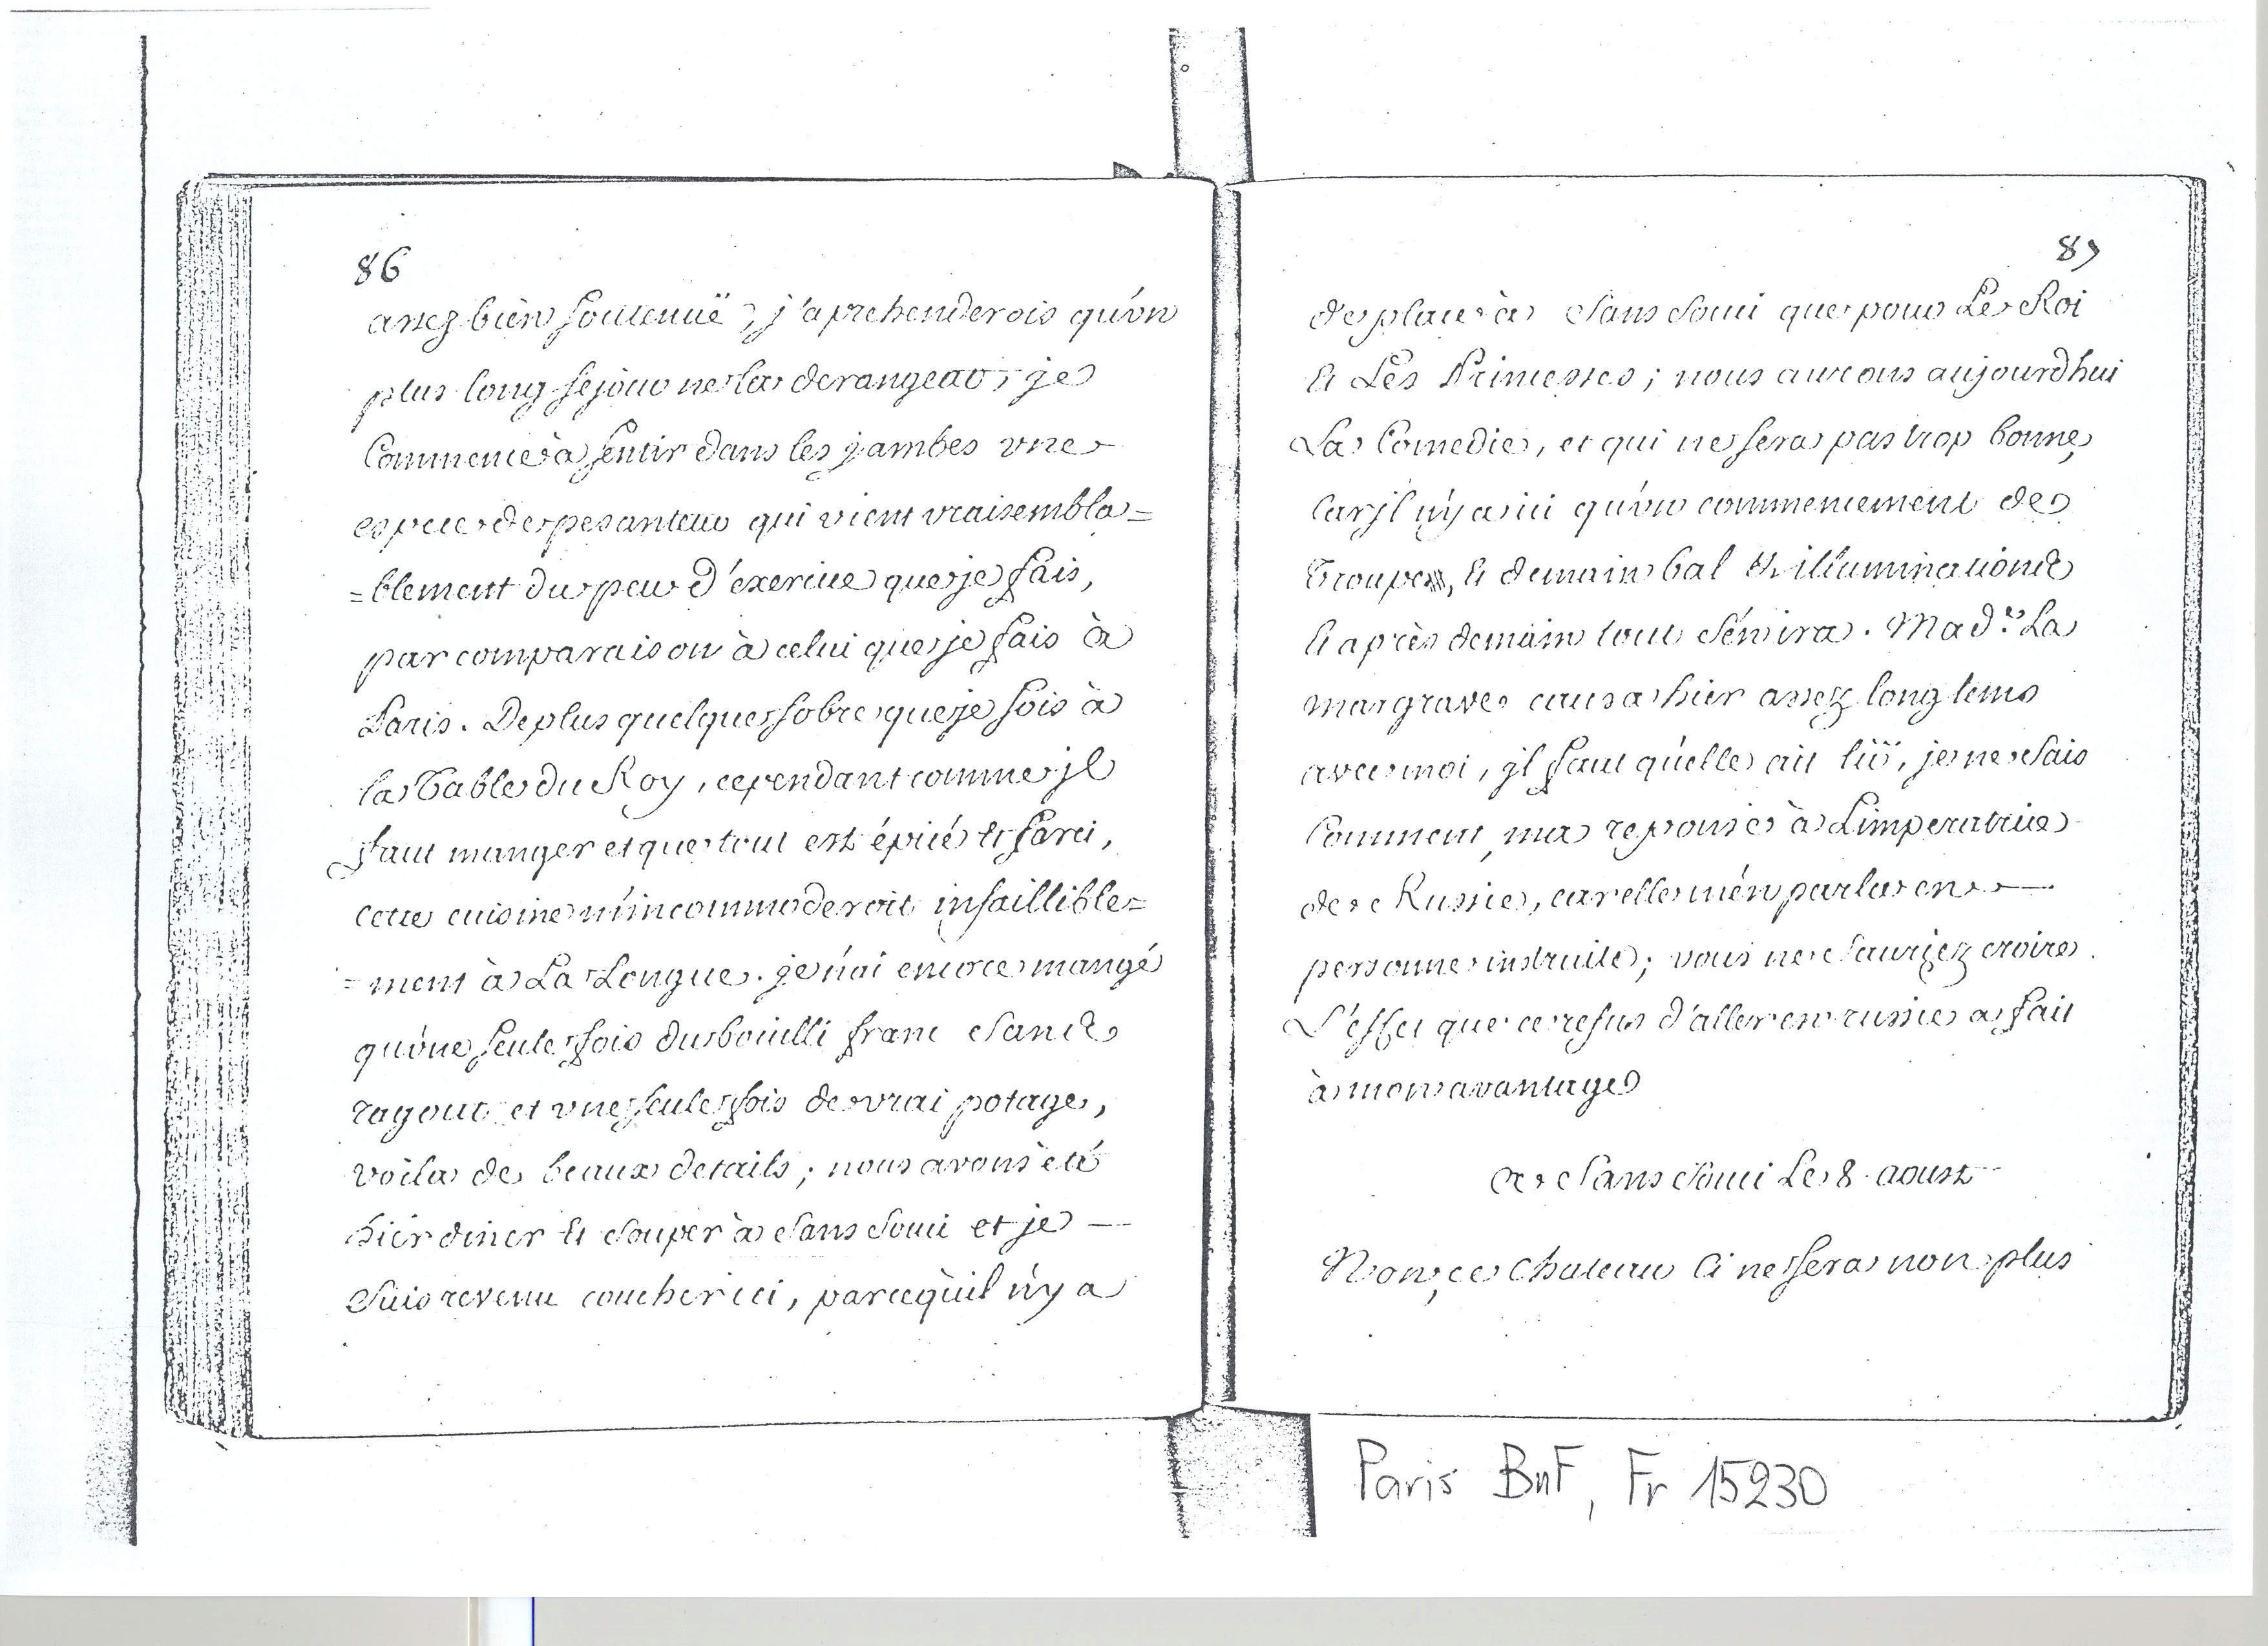 86
assez bien soutenuë, j'aprehenderois qu'un
plus long sejour ne la derangeat; je
Commence à sentir dans les jambes vne
espece de pesanteur qui vient vraisembla=
=blement du peu d'exercice que je fais,
par comparaison à celui que je fais à
Paris. De plus quelque sobre que je sois à
la Table du Roy, cependant comme jl
faut manger et que tout est épicé et farci,
cette cuisine m'incommoderoit infaillible=
=ment à La Longue. je n'ai encore mangé
qu'vne seule fois du boüilli franc et sans
ragout et vne seule fois de vrai potage,
voila de beaux details; nous avons été
hier diner et souper à Sans Souci et je
suis revenu coucher ici, parcequ'il n'y a
87
de place à Sans Souci que pour Le Roi
et Les Princesses; nous aurons aujourdhui
La Comedie, et qui ne sera pas trop bonne,
Car jl n'y a ici qu'vn commencement de
Troupe, et demain bal et illumination &
et après demain tout s'en ira. Mad.e La
margrave causa hier assez longtems
avec moi, jl faut qu'elle ait lü, je ne sais
Comment, ma reponse à L'imperatrice
de Russie, car elle m'en parla en
personne instruite; vous ne sauriez croire
L'effet que ce refus d'aller en russie a fait
à mon avantage
De Sans Souci Le 8 aoust
Non, ce Chateau Ci ne sera non plus
Paris BnF, Fr 15230